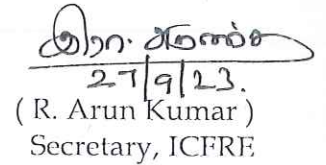 இரா.
27/9/23.
( R. Arun Kumar )
Secretary, ICFRE